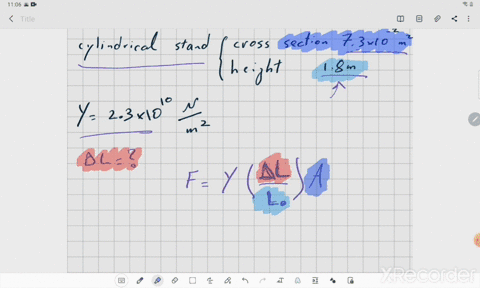 11:06
Title
cylindrical stand { cross section 7.3x10⁻² m²
height 1.8m
Y = 2.3x10¹⁰ N/m²
ΔL = ?
F = Y (ΔL/L₀) A
XRecorder